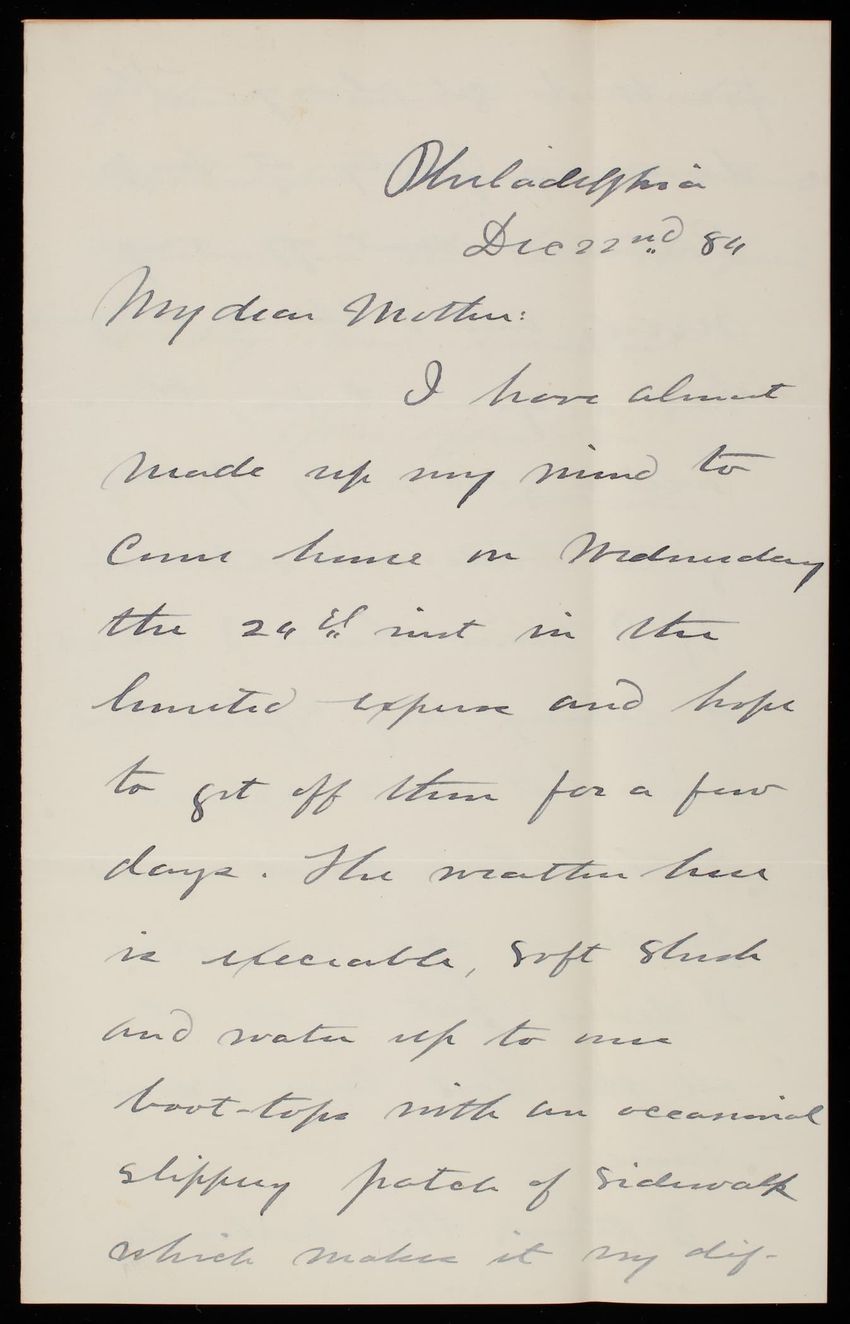 Philadelphia
Dec 22nd 84
My dear Mother:
I have almost
made up my mind to
Come home on Wednesday
the 24th inst in the
limited express and hope
to get off then for a few
days. The weather here
is execrable, soft slush
and water up to ones
boot-tops with an occasional
slippery patch of sidewalk
which makes it very dif-